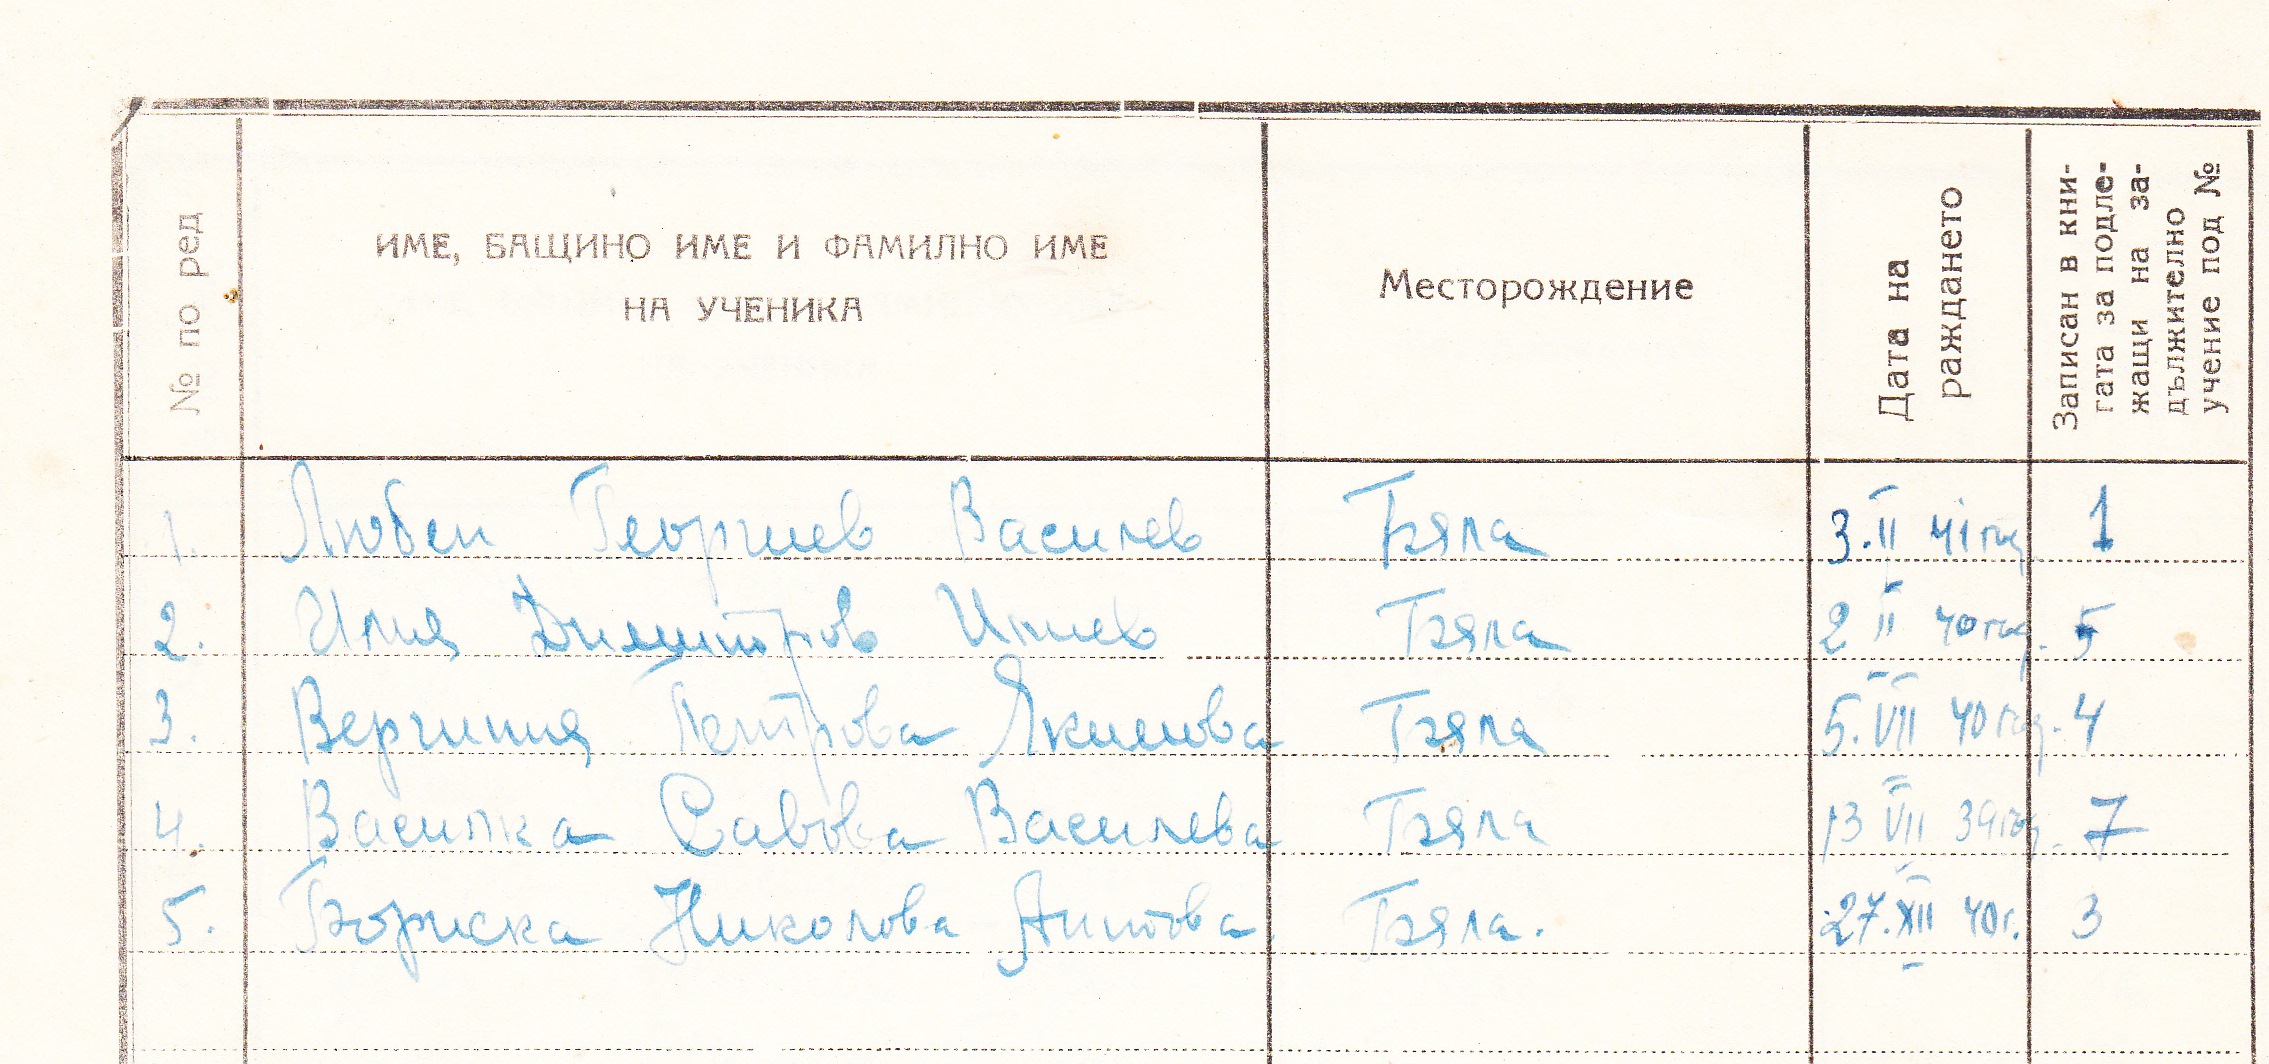 № по ред
ИМЕ, БАЩИНО ИМЕ И ФАМИЛНО ИМЕ
НА УЧЕНИКА
Месторождение
Дата на
раждането
Записан в кни-
гата за подле-
жащи на за-
дължително
учение под №
1. Любен Георгиев Василев Бяла 3.II 41 год. 1
2. Илия Димитров Илиев Бяла 2 II 40 год. 5
3. Вергиния Петрова Якимова Бяла 5.VII 40 год. 4
4. Василка Савова Василева Бяла 13 VII 39 год. 7
5. Бориска Николова Антова Бяла. 27.XII 40 г. 3